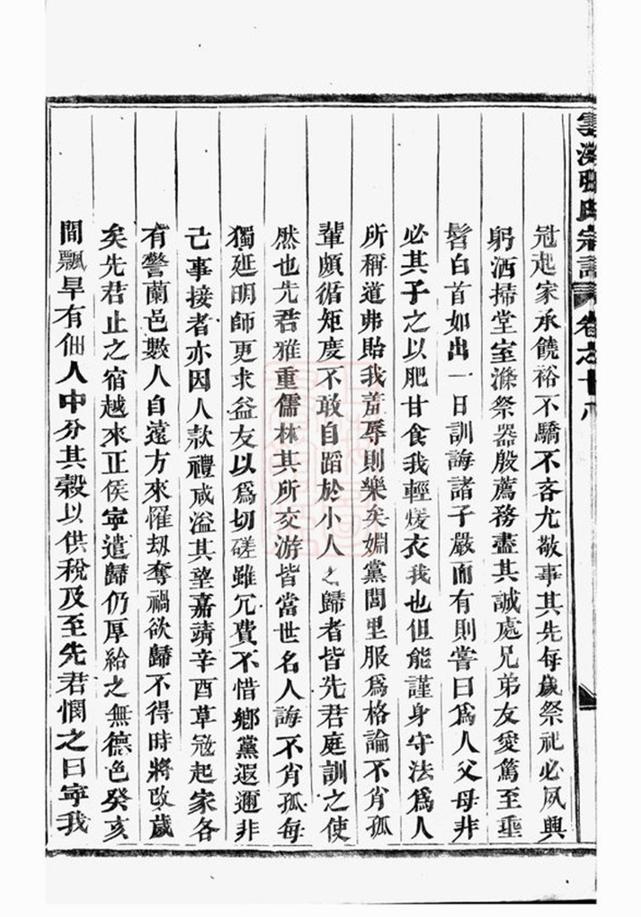 冠起家承饒裕不驕不吝尤敬事其先每歲祭祀必夙興
躬洒掃堂室滌祭器殷薦務盡其誠處兄弟友愛篤至垂
髫白首如出一日訓誨諸子嚴而有則嘗曰爲人父母非
必其子之以肥甘食我輕煖衣我也但能謹身守法爲人
所稱道弗貽我羞辱則樂矣婣黨閭里服爲格論不肖孤
輩頗循矩度不敢自蹈於小人之歸者皆先君庭訓之使
然也先君雅重儒林其所交游皆當世名人誨不肖孤每
獨延明師更求益友以爲切磋雖冗費不惜鄉黨遐邇非
己事接者亦因人款禮咸溢其望嘉靖辛酉草冦起家各
有警蘭邑數人自遠方來罹劫奪禍欲歸不得時將改歲
矣先君止之宿越來正俟寧遣歸仍厚給之無德色癸亥
間飄旱有佃人中分其穀以供稅及至先君憫之曰寧我
張氏宗譜
卷之十八